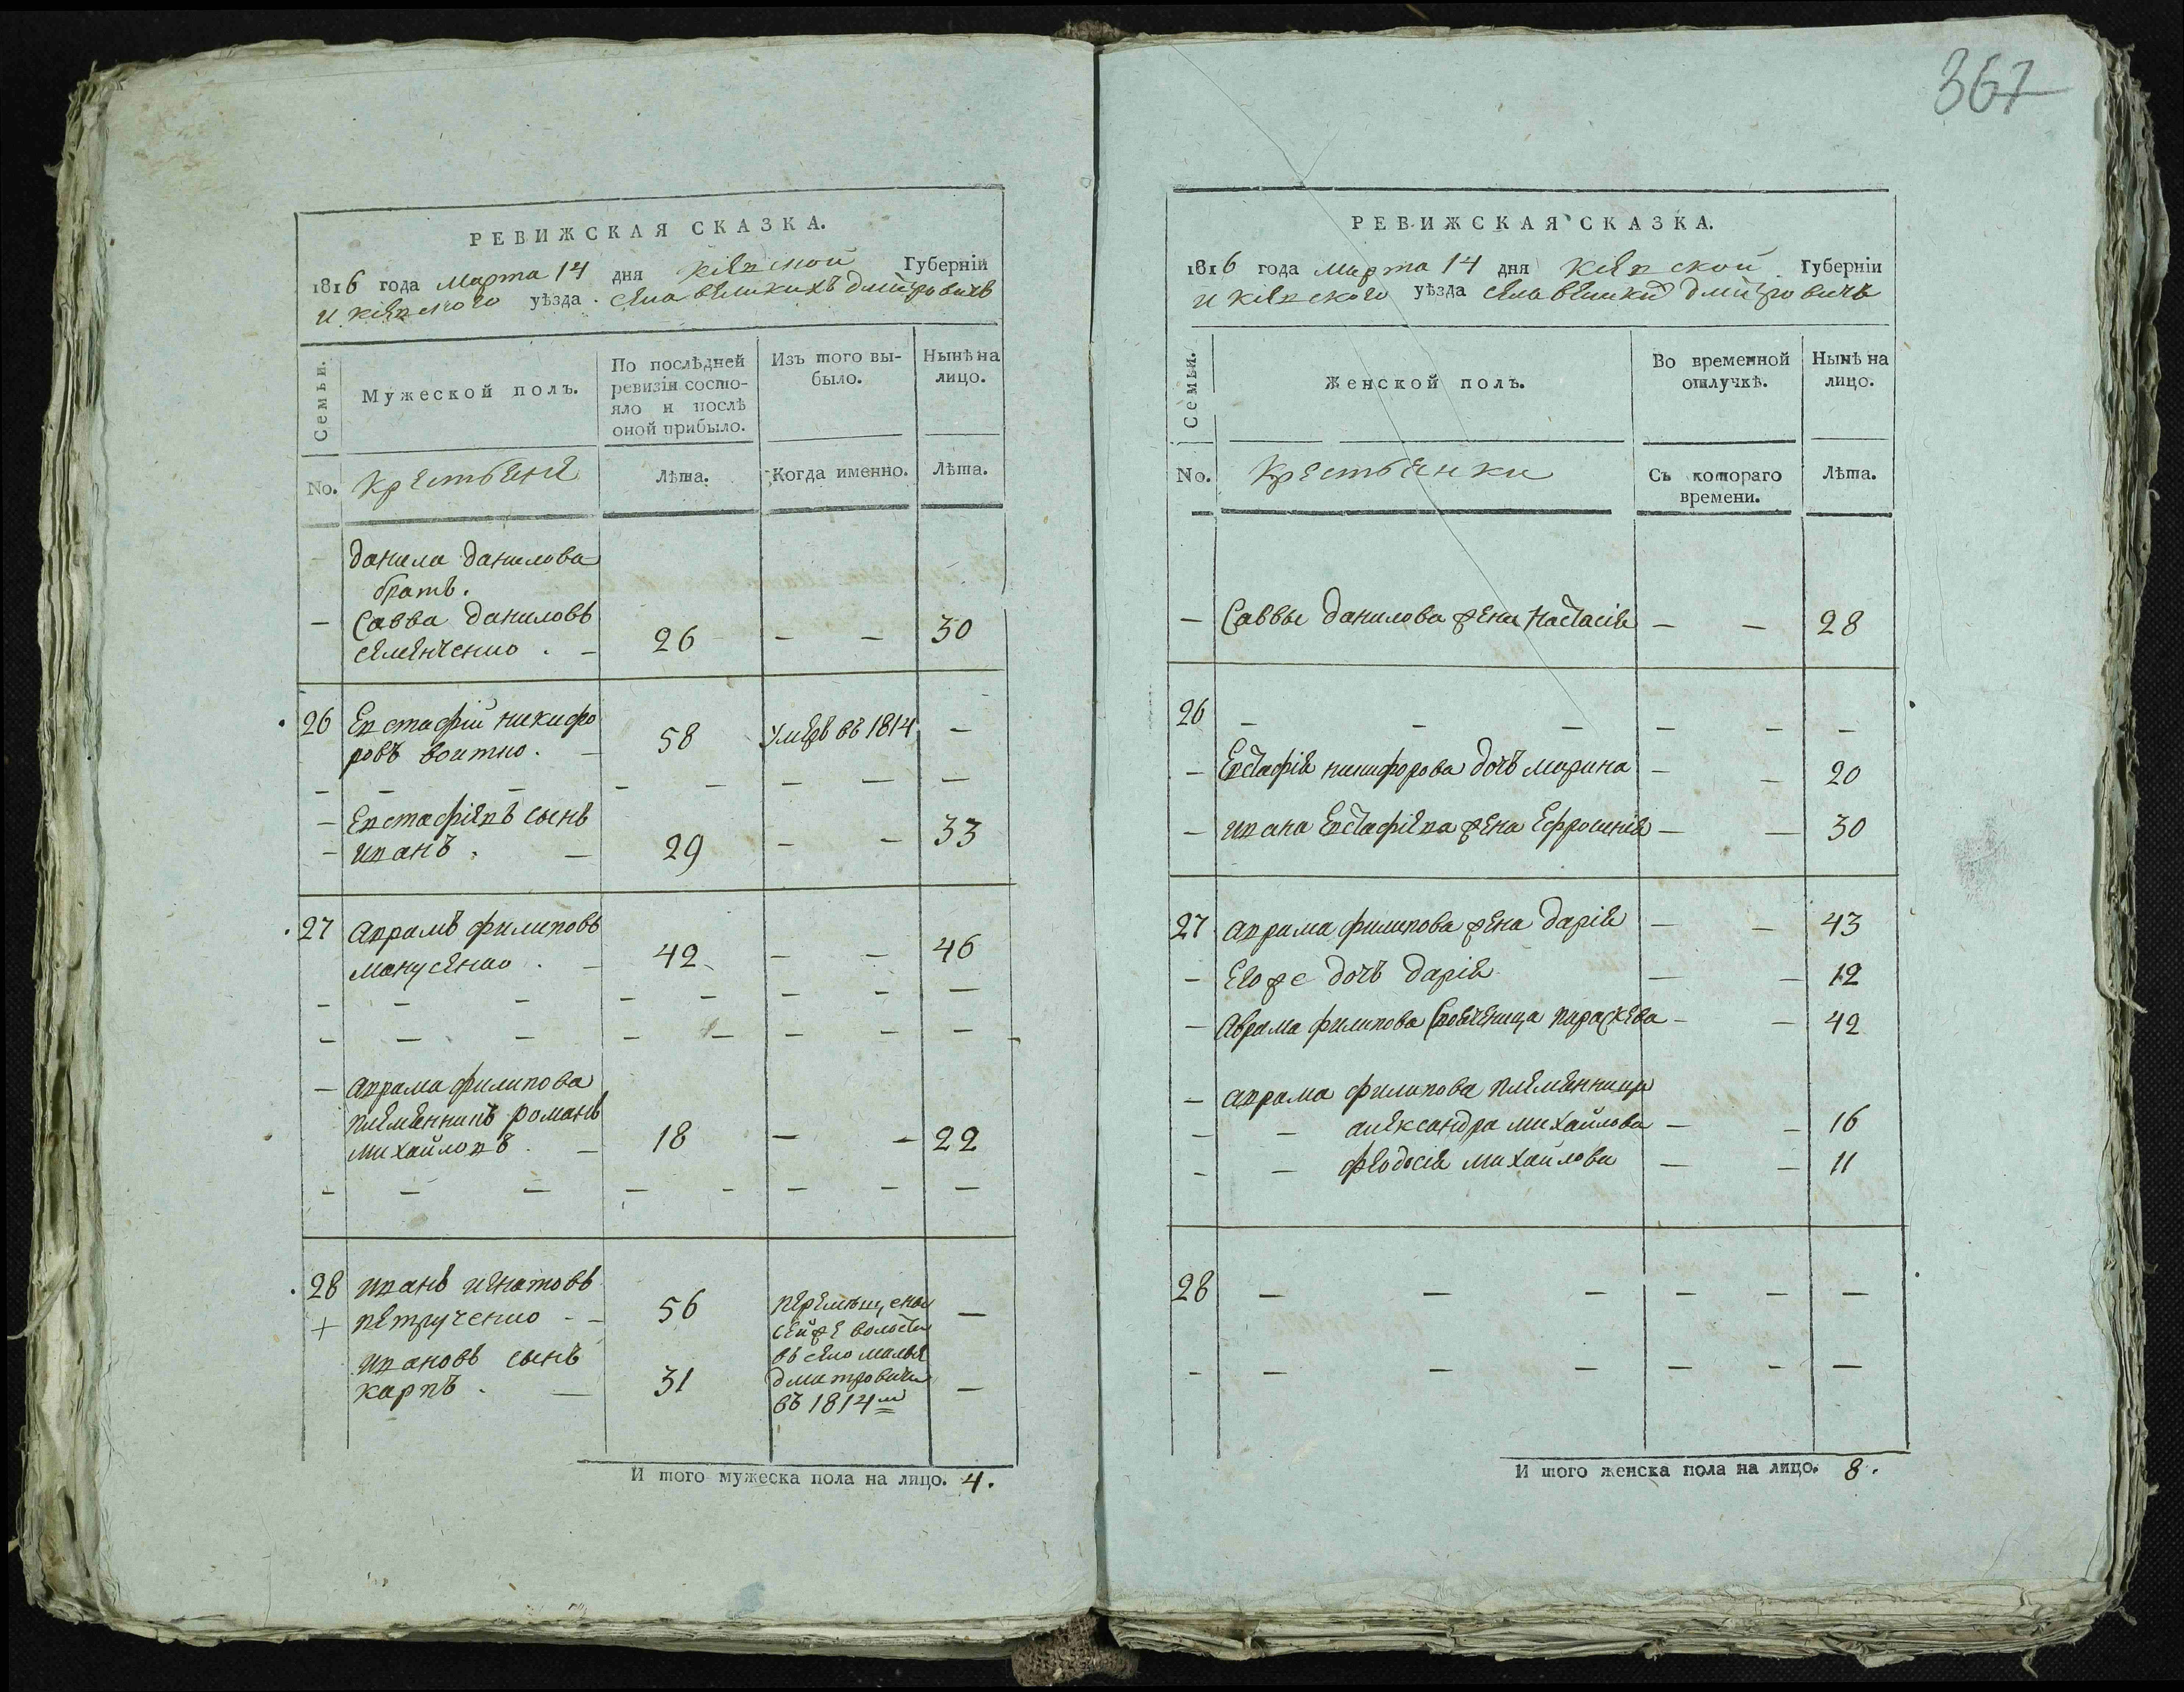 367
РЕВИЖСКАЯ СКАЗКА.
1816 года марта 14 дня Кіевской Губерніи
и кіевского уѣзда села великихъ дмитровичъ
Семьи. Мужеской полъ. По послѣдней ревизіи состояло и послѣ оной прибыло. Изъ того выбыло. Нынѣ на лицо.
No. Крестьяне Лѣта. Когда именно. Лѣта.
данила данилова
братъ.
— Савва даниловъ
семенченко . — 26 — — 30
26 Евстафій никифо
ровъ воитко . — 58 умеръ въ 1814 —
— — — — — — — —
— Евстафіевъ сынъ
— иванъ . — 29 — — 33
27 аврамъ филиповъ
манусенко . — 42 — — 46
— — — — — — — —
— — — — — — — —
— аврама филипова
племенникъ романъ
михайловъ . — 18 — — 22
— — — — — — — —
28 иванъ игнатовъ
+ петрученко - - 56 перемѣщены —
сей же волости
ивановъ сынъ въ село малые
карпъ . — 31 дмитровичи —
въ 1814м
И того мужеска пола на лицо. 4.
РЕВИЖСКАЯ СКАЗКА.
1816 года марта 14 дня Кіевской Губерніи
и кіевского уѣзда села великихъ дмитровичъ
Семьи. Женской полъ. Во временной отлучкѣ. Нынѣ на лицо.
No. Крестьянки Съ котораго времени. Лѣта.
— Саввы данилова жена настасія — — 28
26 — — — — — —
— Евстафія никифорова дочь марина — — 20
— ивана Евстафіева жена Ефросинія — — 30
27 аврама филипова жена дарія — — 43
— Его же дочь дарія — — 12
— Аврама филипова параскева — — 42
— аврама филипова племенницы
— — александра михайлова — — 16
— — феодосія михайлова — — 11
28 — — — — — —
— — — — — — —
И того женска пола на лицо. 8.